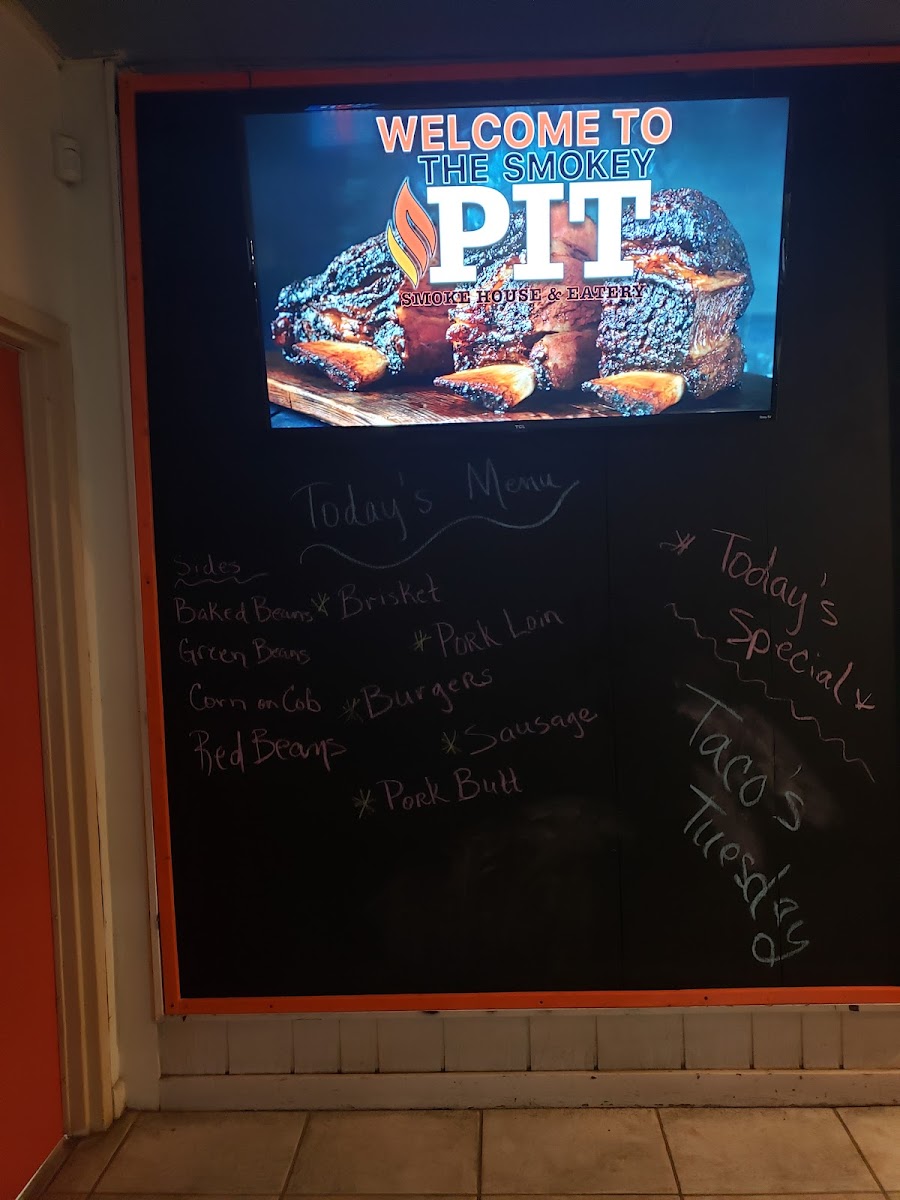 WELCOME TO
THE SMOKEY
PIT
SMOKE HOUSE & EATERY
TCL
Today's Menu
Sides
Baked Beans
Green Beans
Corn on Cob
Red Beans
* Brisket
* Pork Loin
* Burgers
* Sausage
* Pork Butt
* Today's
Special *
Taco's
Tuesday